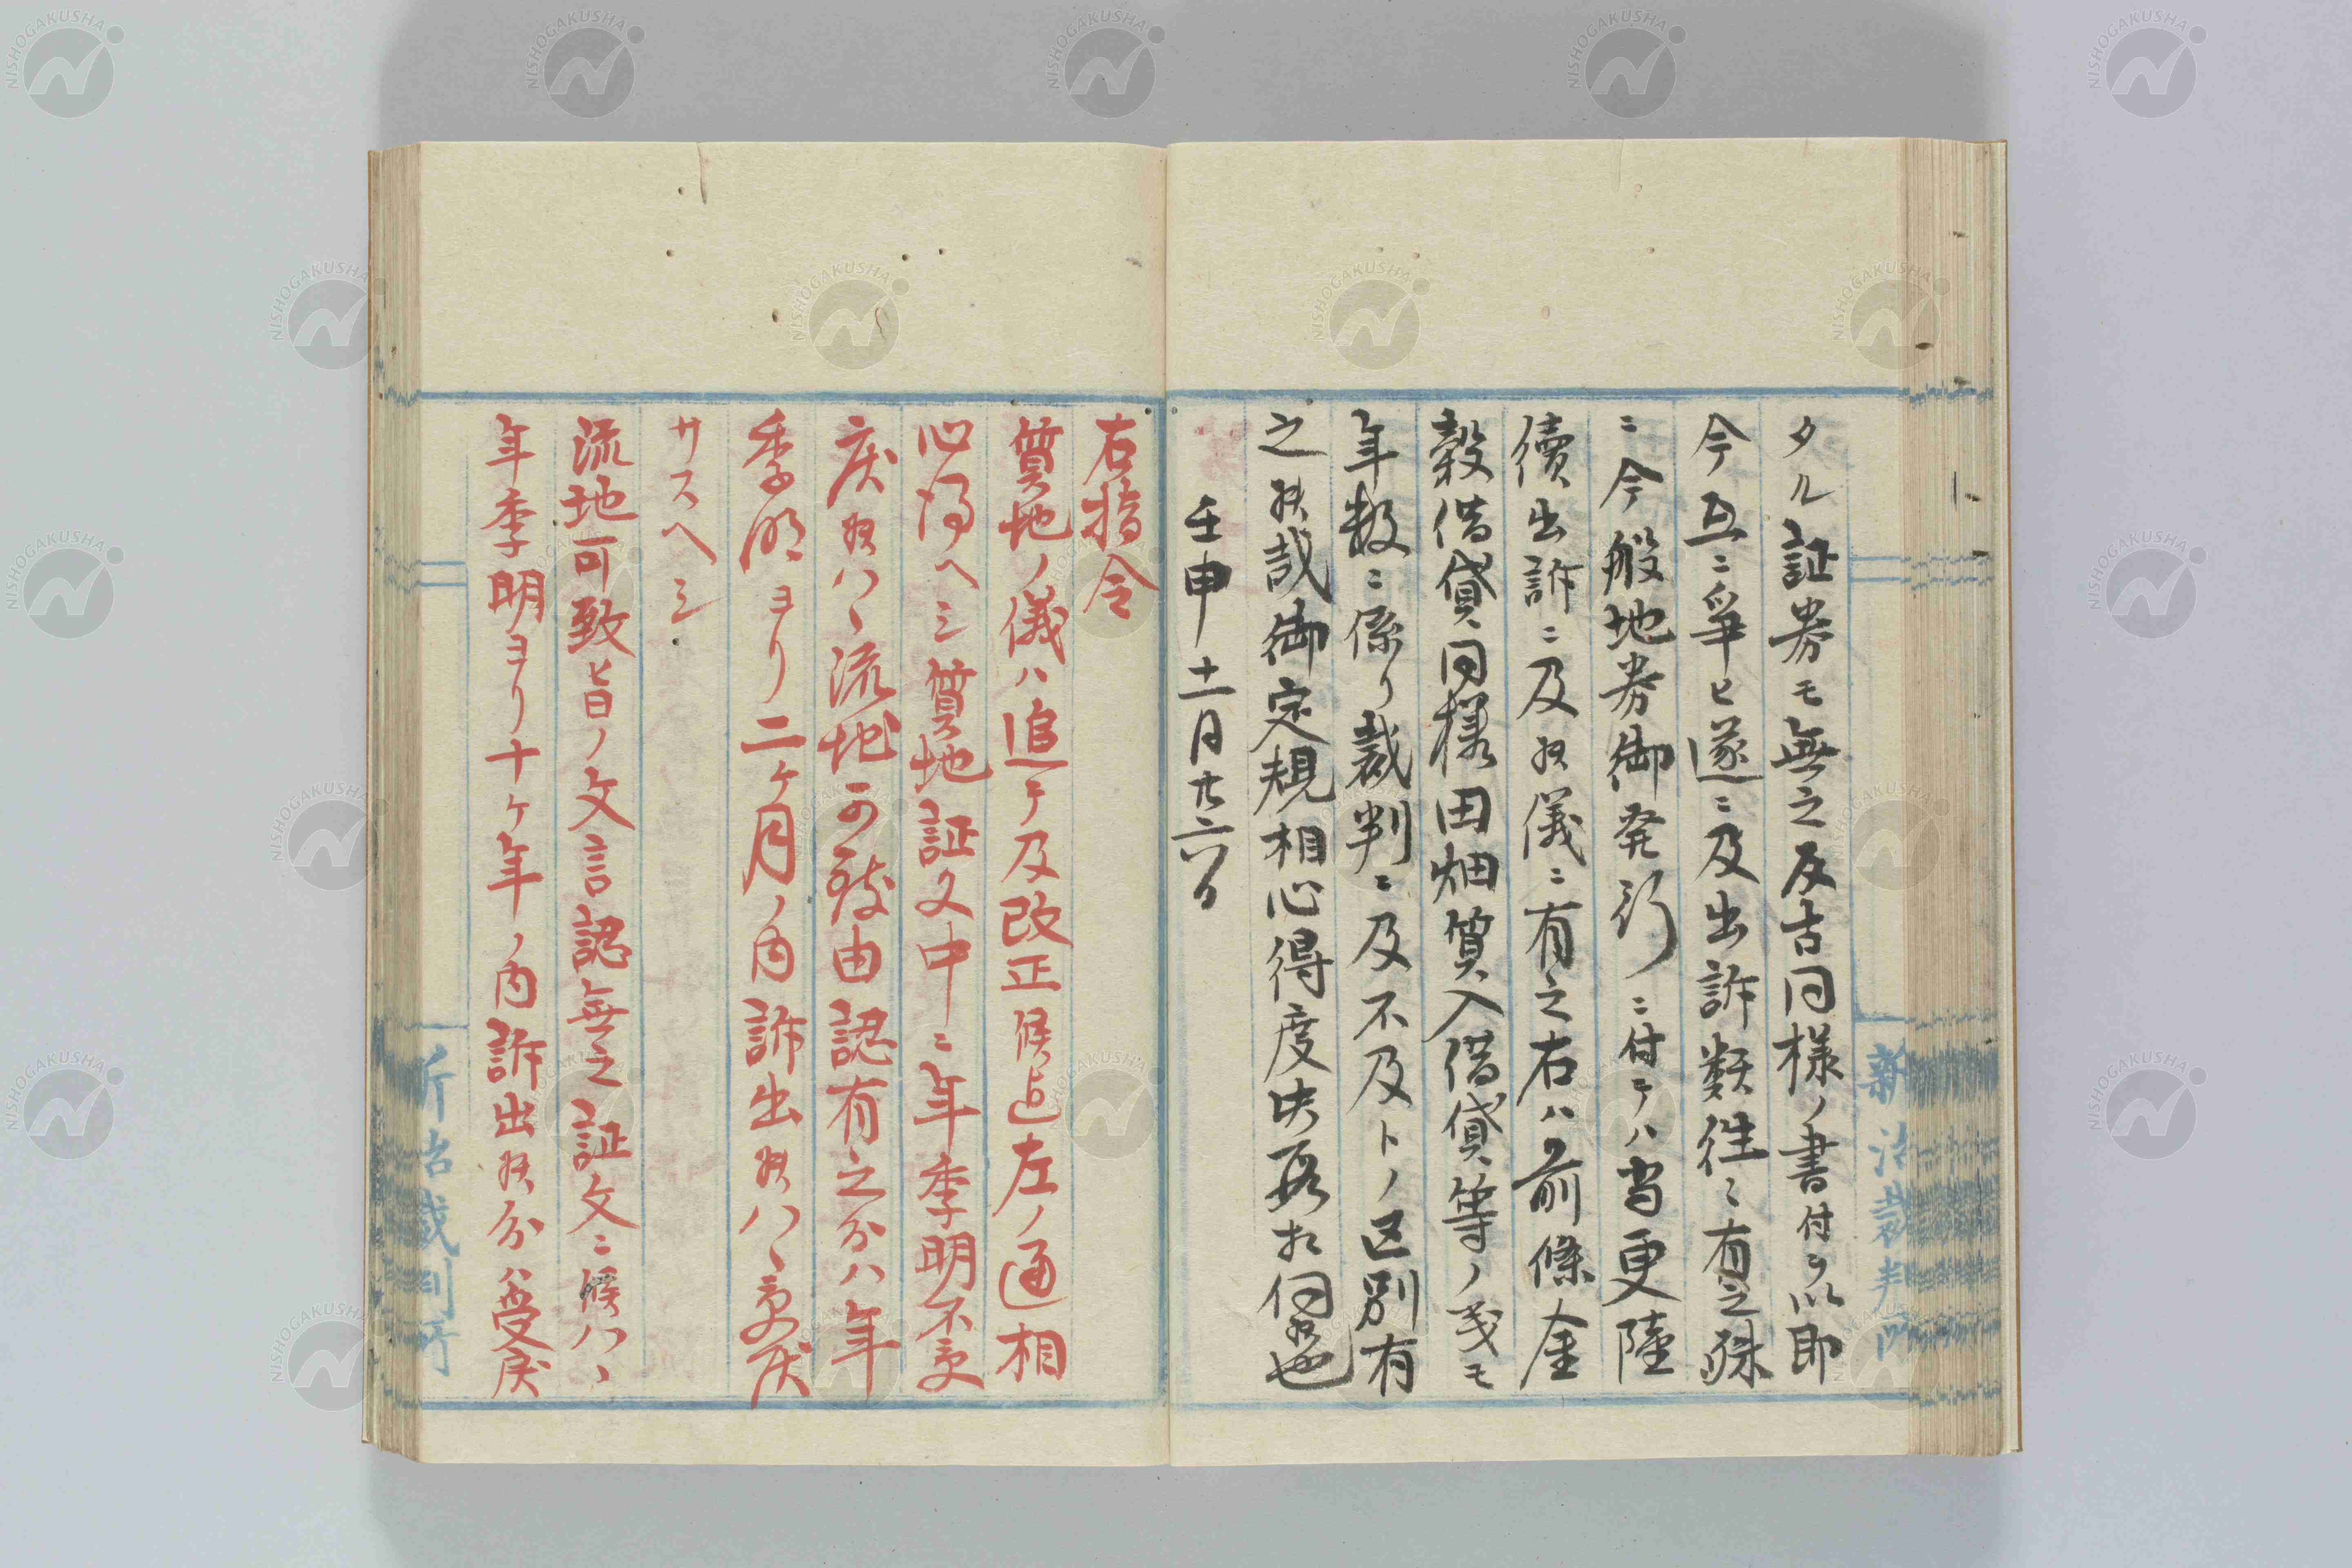 タル証券モ無之反古同様ノ書付ヲ以即
今互ニ爭ヒ遂ニ及出訴類往々有之殊
ニ今般地券御発行ニ付テハ当更陸
續出訴ニ及候儀ニ有之右ハ前條金
穀借貸同様田畑質入借貸等ノ義モ
年数ニ係リ裁判ニ及不及トノ区別有
之候哉御定規相心得度此段相伺候也
壬申十一月廿六日
右指令
質地ノ儀ハ追テ及改正候迄左ノ通相
心得ヘシ質地証文中ニ年季明不受
戻候ハヽ流地可致由認有之分ハ年
季明ヨリ二ヶ月ノ内訴出候ハヽ受戻
サスヘシ
流地可致ヒ旨ノ文言認無之証文ニ候ハヽ
年季明ヨリ十ヶ年ノ内訴出候分ハ受戻
新治裁判所
NISHOGAKUSHA